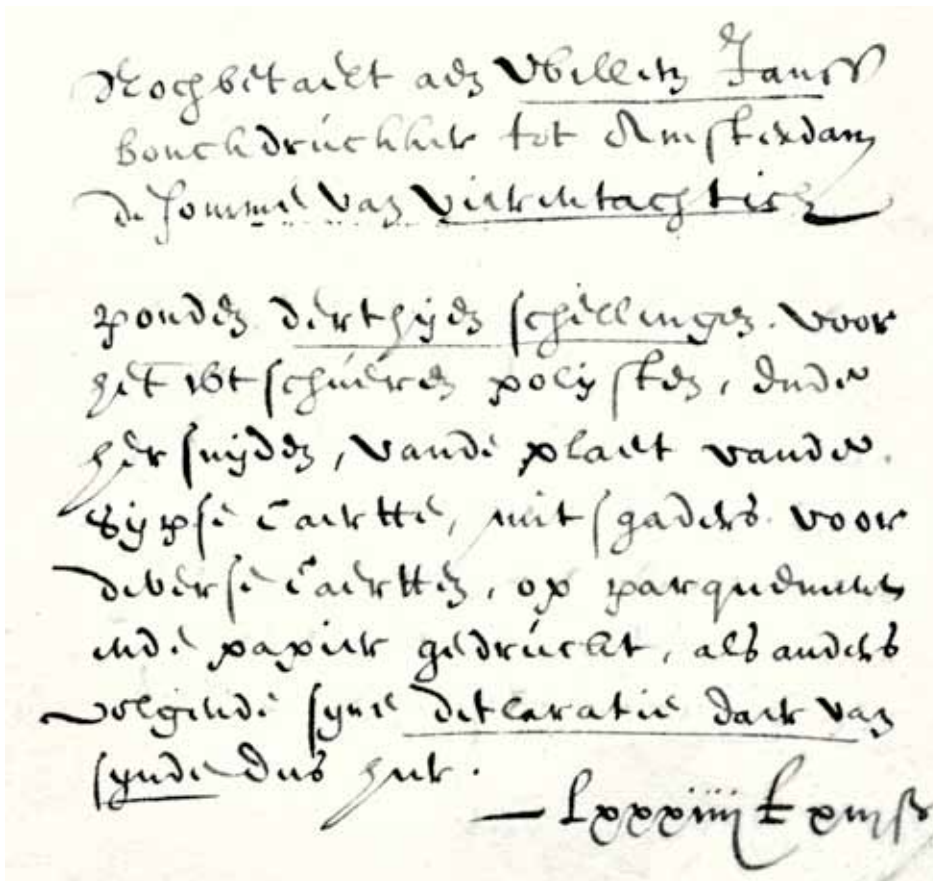 Noch betaelt aen Willem Janss
bouckdruckker tot Amsterdam
de somme van vierentachtich
ponden derthyen schellingen. voor
het wtschueren polysten, ende
hersnyden, vande plaet vande
Sypse Caertte, mitsgaders voor
diverse Caertten, op parquement
ende papier gedruckt, als anders
volgende syne declaratie daer van
synde dus hier.
— Lxxxiiij £ xiij ß